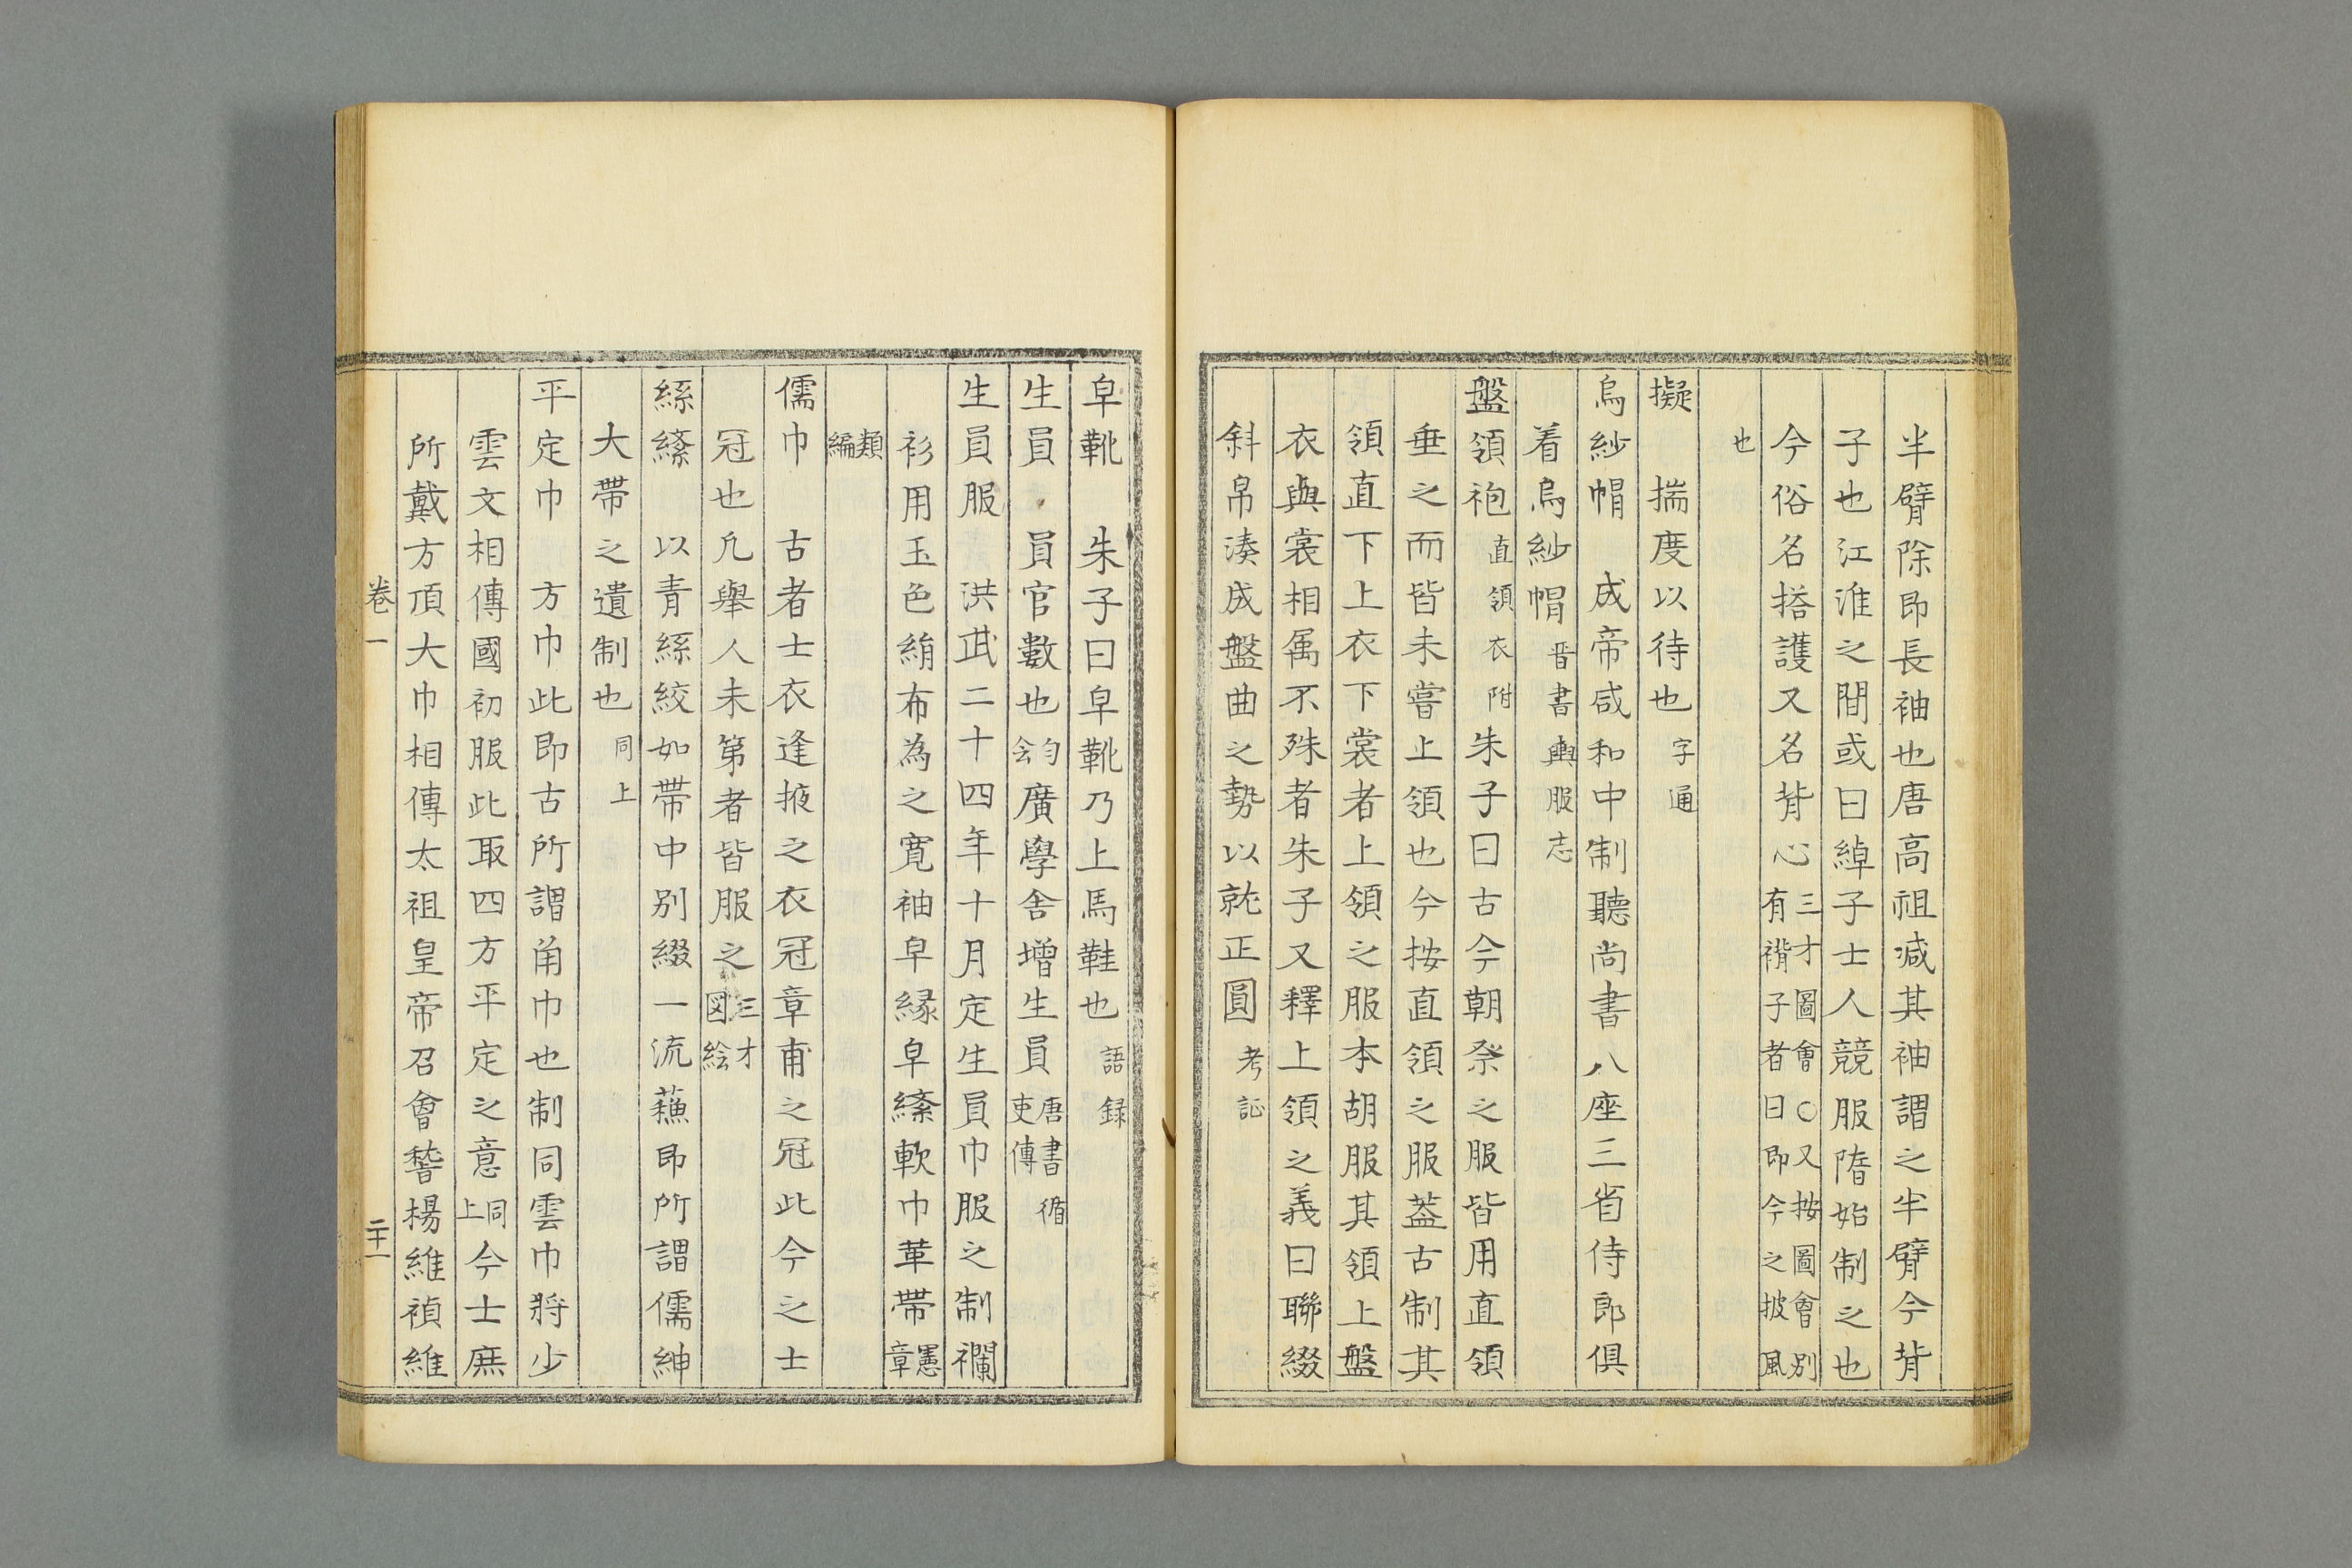 半臂除即長袖也唐高祖减其袖謂之半臂今背
子也江淮之間或曰綽子士人競服隋始制之也
今俗名搭護又名背心三才圖會○又按圖會別有褙子者曰即今之披風
也
擬　揣度以待也字通
烏紗帽　成帝咸和中制聽尚書八座三省侍郎俱
着烏紗帽晋書輿服志
盤領袍直領衣附朱子曰古今朝祭之服皆用直領
垂之而皆未嘗上領也今按直領之服蓋古制其
領直下上衣下裳者上領之服本胡服其領上盤
衣與裳相属不殊者朱子又釋上領之義曰聯綴
斜帛湊成盤曲之勢以就正圓考証
皁靴　朱子曰皁靴乃上馬鞋也語録
生員　員官數也韵会廣學舍增生員唐書循吏傳
生員服　洪武二十四年十月定生員巾服之制襴
衫用玉色絹布為之寛袖皁縁皁縧軟巾革帶憲章
類編
儒巾　古者士衣逢掖之衣冠章甫之冠此今之士
冠也凡舉人未第者皆服之三才図絵
絲縧　以青絲絞如帶中別綴一流蘓即所謂儒紳
大帶之遺制也同上
平定巾　方巾此即古所謂角巾也制同雲巾將少
雲文相傳國初服此取四方平定之意同上今士庶
所戴方頂大巾相傳太祖皇帝召會嵆楊維禎維
卷一
二十一